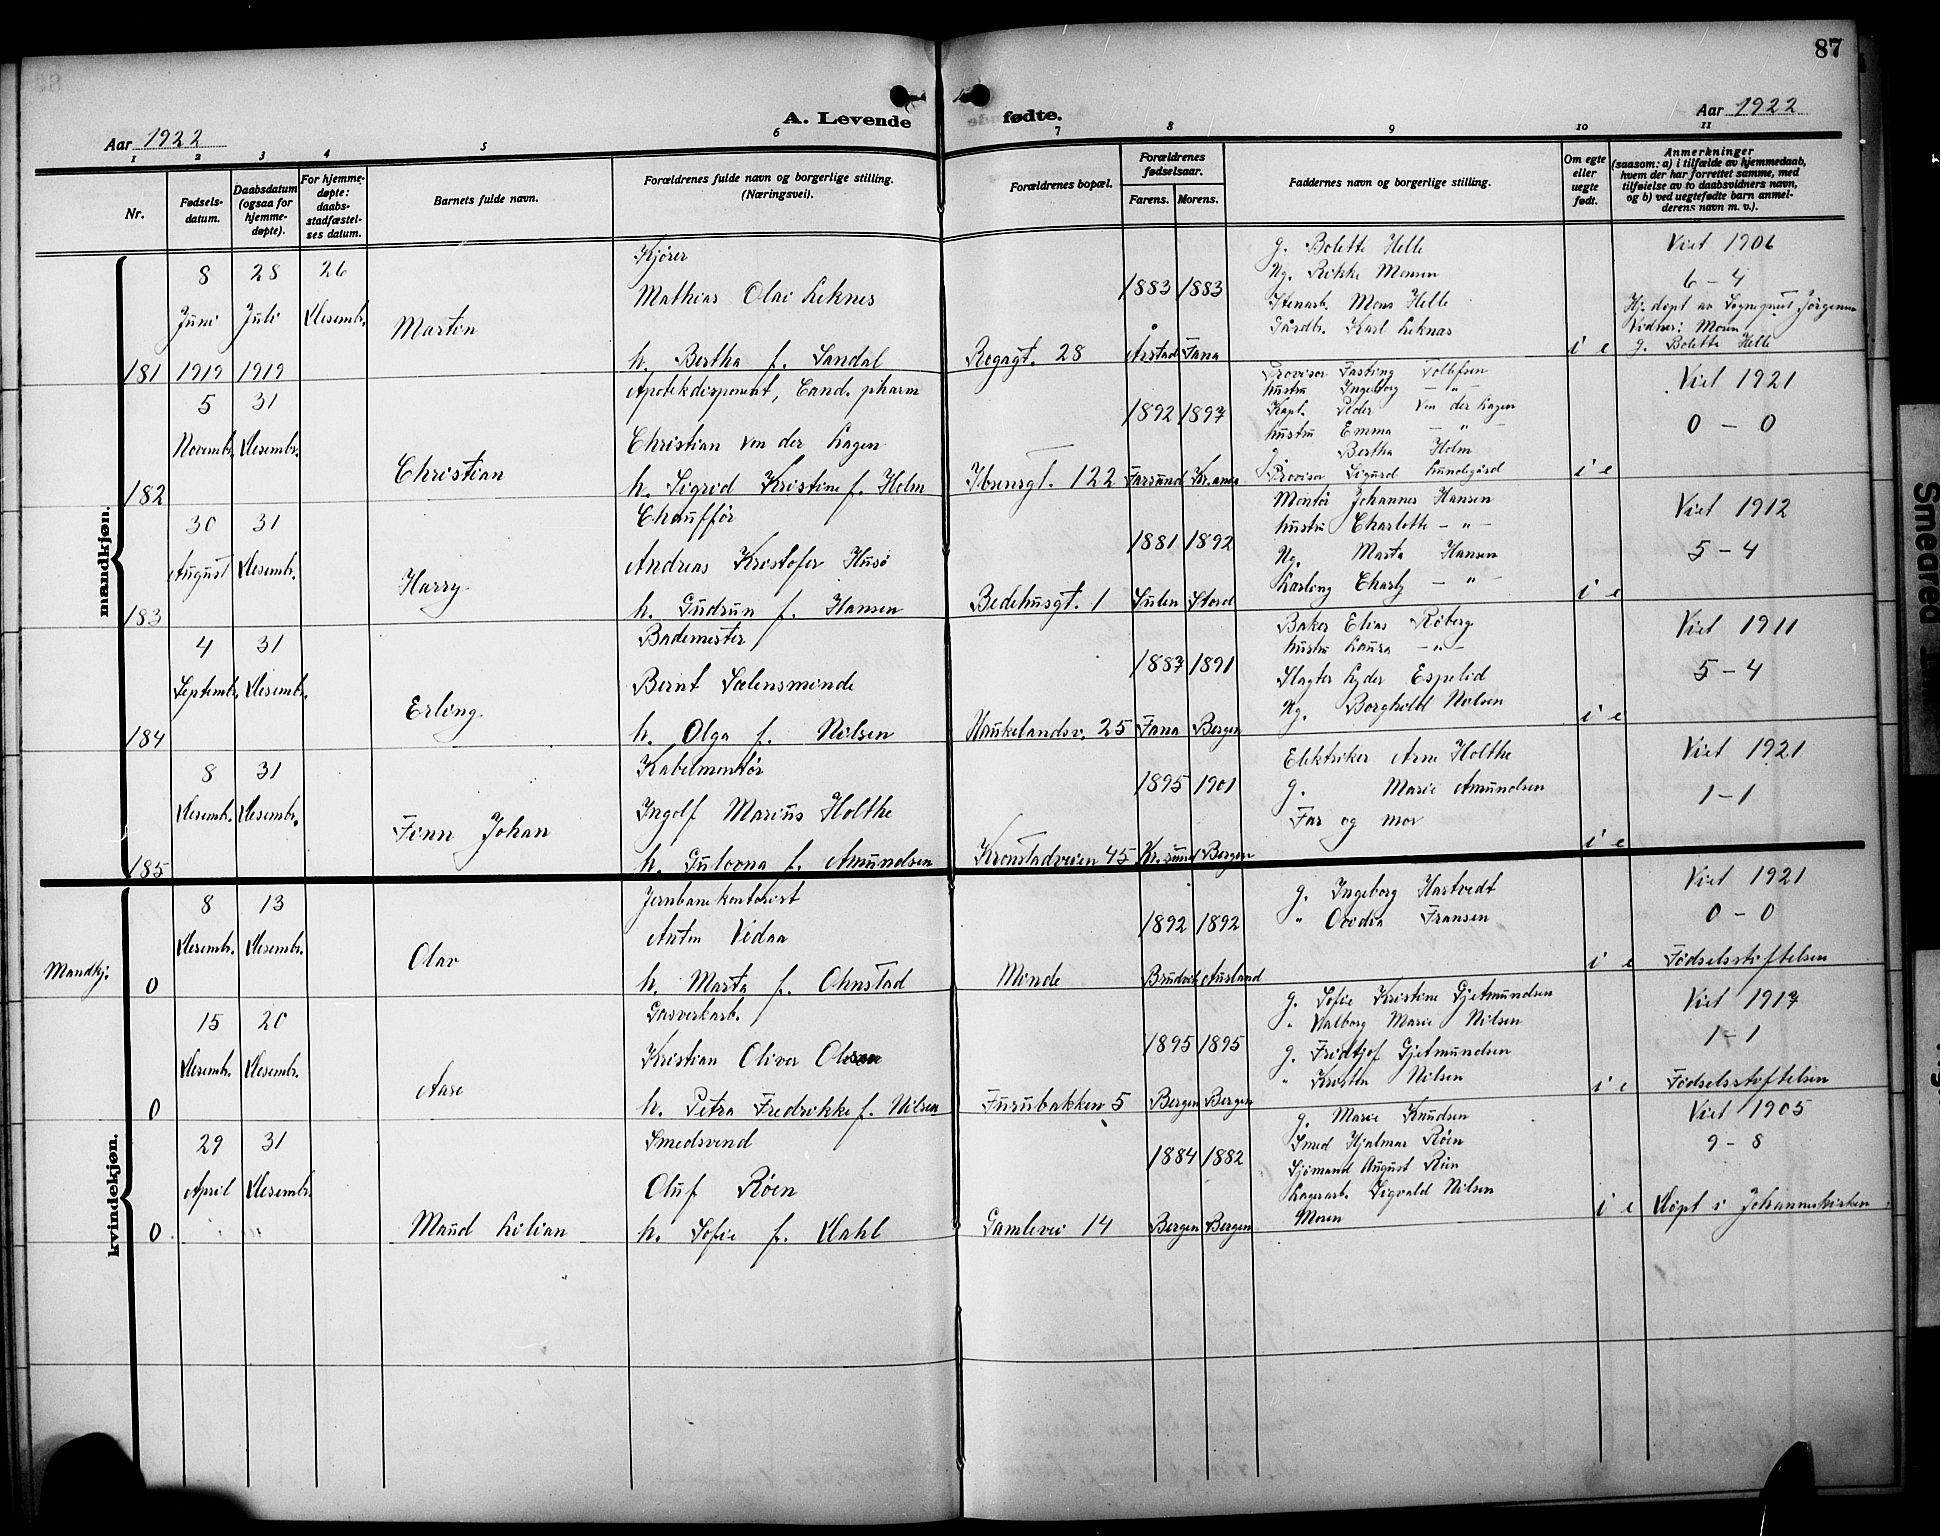 87
A. Levende fødte.
Aar 1922
Aar 1922
1 2 3 4 5 6 7 8 9 10 11
Nr.
Fødsels-
datum.
Daabsdatum
(ogsaa for
hjemme-
døpte).
For hjemme-
døpte:
daabs-
stadfæstel-
ses datum.
Barnets fulde navn.
Forældrenes fulde navn og borgerlige stilling.
(Næringsvei).
Forældrenes bopæl.
Forældrenes
fødselsaar.
Farens. Morens.
Faddernes navn og borgerlige stilling.
Om egte
eller
uegte
født.
Anmerkninger
(saasom: a) i tilfælde av hjemmedaab,
hvem der har forrettet samme, med
tilføielse av to daabsvidners navn,
og b) ved uegtefødte barn anmel-
derens navn m. v.).
mandkjøn.
181
8 Juni 1919
28 Juli 1919
26 Desembr.
Martin
Kjører
Mathias Olai Leknes
h. Bertha f. Sandal
Rogagt. 28
1883 1883
Årstad Fana
g. Bolette Helle
Ug. Rikke Monsen
Stenarb. Mons Helle
Gårdbr. Karl Leknes
i e
Viet 1906
6 - 4
Hj. døpt av Sogneprest Jørgensen
Vidner: Moren
g. Bolette Helle
182
5 Novembr.
31 Desembr.
Christian
Apotekdisponent, Cand. pharm
Christian von der Lagen
h. Sigrid Kristine f. Holm
Ibsensgt. 122
1892 1897
Farsund Kr.ania
Provisor Fasting Tollefsen
hustru Ingeborg - " -
Kapt. Peder von der Lagen
hustru Emma - " -
g. Bertha Holm
Provisor Sigurd Lundegård
i e
Viet 1921
0 - 0
183
30 August
31 Desembr.
Harry
Chauffør
Andreas Kristofer Husø
h. Gudrun f. Hansen
Bedehusgt. 1
1881 1892
Sulen Stord
Montør Johannes Hansen
hustru Charlotte - " -
Ug. Marta Hansen
Yngling Charly - " -
i e
Viet 1912
5 - 4
184
4 Septembr.
31 Desembr.
Erling
Bademester
Bernt Sælensminde
h. Olga f. Nilsen
Haukelandsv. 25
1887 1891
Fana Bergen
Baker Elias Røberg
hustru Laura - " -
Slagter Lyder Espelid
Ug. Borghild Nilsen
i e
Viet 1911
5 - 4
185
8 Desembr.
31 Desembr.
Finn Johan
Kabelmontør
Ingolf Marius Holthe
h. Gulovna f. Amundsen
Kronstadveien 45
1895 1901
Kr.sund Bergen
Elektriker Arne Holthe
g. Marie Amundsen
Far og mor
i e
Viet 1921
1 - 1
Mandkj.
0
8 Desembr.
13 Desembr.
Olav
Jernbanekontorist
Anton Vidaa
h. Marta f. Ohnstad
Minde
1892 1892
Bruvik Aurland
g. Ingeborg Hartvedt
" Ovidia Fransen
i e
Viet 1921
0 - 0
Fødselsstiftelsen
kvindekjøn.
0
15 Desembr.
20 Desembr.
Aase
Gasverkarb.
Kristian Oliver Olsen
h. Petra Fredrikke f. Nilsen
Furubakken 5
1895 1895
Bergen Bergen
g. Sofie Kristine Gjetmundsen
" Valborg Marie Nilsen
g. Fridtjof Gjetmundsen
" Kristen Nilsen
i e
Viet 1917
1 - 1
Fødselsstiftelsen
0
29 April
31 Desembr.
Maud Lilian
Smedsvend
Oluf Røen
h. Sofie f. Dahl
Gamlevei 14
1884 1882
Bergen Bergen
g. Marie Knudsen
Smed Hjalmar Røen
Sjømand August Røen
Lagerarb. Sigvald Nilsen
Moren
i e
Viet 1905
9 - 8
Døpt i Johanneskirken